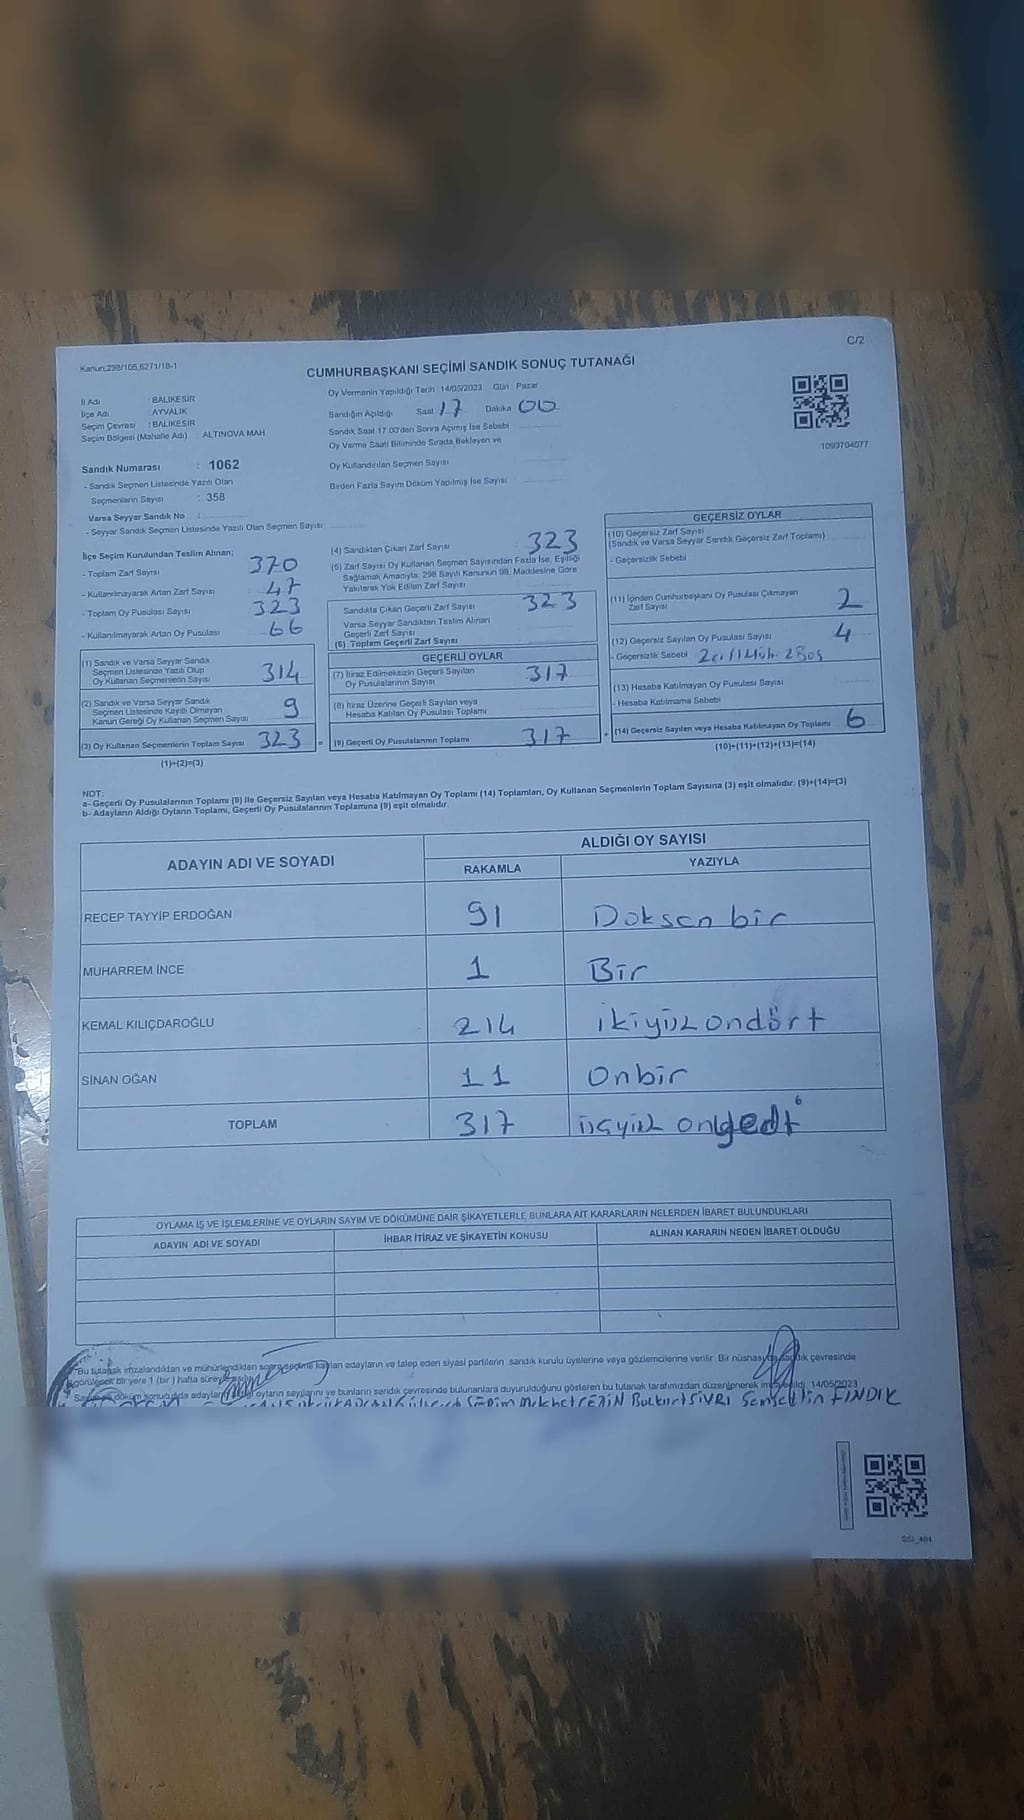 Kanun;298/105,6271/18-1
C/2
CUMHURBAŞKANI SEÇİMİ SANDIK SONUÇ TUTANAĞI
İl Adı : BALIKESİR
İlçe Adı : AYVALIK
Seçim Çevresi : BALIKESİR
Seçim Bölgesi (Mahalle Adı) : ALTINOVA MAH.
Sandık Numarası : 1062
- Sandık Seçmen Listesinde Yazılı Olan
Seçmenlerin Sayısı : 358
Varsa Seyyar Sandık No :
- Seyyar Sandık Seçmen Listesinde Yazılı Olan Seçmen Sayısı
Oy Vermenin Yapıldığı Tarih :14/05/2023 Gün : Pazar
Sandığın Açıldığı Saat 17 Dakika 00
Sandık Saat 17.00'den Sonra Açımış İse Sebebi
Oy Verme Saati Bitiminde Sırada Bekleyen ve
Oy Kullandırılan Seçmen Sayısı
Birden Fazla Sayım Döküm Yapılmış İse Sayısı
1093704077
İlçe Seçim Kurulundan Teslim Alınan;
- Toplam Zarf Sayısı 370
- Kullanılmayarak Artan Zarf Sayısı 47
- Toplam Oy Pusulası Sayısı 323
- Kullanılmayarak Artan Oy Pusulası 66
(1) Sandık ve Varsa Seyyar Sandık
Seçmen Listesinde Yazılı Olup
Oy Kullanan Seçmenlerin Sayısı 314
(2) Sandık ve Varsa Seyyar Sandık
Seçmen Listesinde Kayıtlı Olmayan
Kanun Gereği Oy Kullanan Seçmen Sayısı 9
(3) Oy Kullanan Seçmenlerin Toplam Sayısı 323
(1)+(2)=(3)
(4) Sandıktan Çıkan Zarf Sayısı : 323
(5) Zarf Sayısı Oy Kullanan Seçmen Sayısından Fazla İse, Eşitliği
Sağlamak Amacıyla; 298 Sayılı Kanunun 98. Maddesine Göre
Yakılarak Yok Edilen Zarf Sayısı
Sandıkta Çıkan Geçerli Zarf Sayısı 323
Varsa Seyyar Sandıktan Teslim Alınan
Geçerli Zarf Sayısı
(6) Toplam Geçerli Zarf Sayısı
GEÇERLİ OYLAR
(7) İtiraz Edilmeksizin Geçerli Sayılan
Oy Pusulalarının Sayısı 317
(8) İtiraz Üzerine Geçerli Sayılan veya
Hesaba Katılan Oy Pusulası Toplamı
= (9) Geçerli Oy Pusulalarının Toplamı 317
GEÇERSİZ OYLAR
(10) Geçersiz Zarf Sayısı
(Sandık ve Varsa Seyyar Sandık Geçersiz Zarf Toplamı)
- Geçersizlik Sebebi
(11) İçinden Cumhurbaşkanı Oy Pusulası Çıkmayan
Zarf Sayısı 2
(12) Geçersiz Sayılan Oy Pusulası Sayısı 4
- Geçersizlik Sebebi 2 Boş
(13) Hesaba Katılmayan Oy Pusulası Sayısı
- Hesaba Katılmama Sebebi
+ (14) Geçersiz Sayılan veya Hesaba Katılmayan Oy Toplamı 6
(10)+(11)+(12)+(13)=(14)
NOT:
a- Geçerli Oy Pusulalarının Toplamı (9) ile Geçersiz Sayılan veya Hesaba Katılmayan Oy Toplamı (14) Toplamları, Oy Kullanan Seçmenlerin Toplam Sayısına (3) eşit olmalıdır. (9)+(14)=(3)
b- Adayların Aldığı Oyların Toplamı, Geçerli Oy Pusulalarının Toplamına (9) eşit olmalıdır.
ADAYIN ADI VE SOYADI
ALDIĞI OY SAYISI
RAKAMLA YAZIYLA
RECEP TAYYİP ERDOĞAN 91 Doksan bir
MUHARREM İNCE 1 Bir
KEMAL KILIÇDAROĞLU 214 ikiyüz ondört
SİNAN OĞAN 11 Onbir
TOPLAM 317 üçyüz onyedi
6
OYLAMA İŞ VE İŞLEMLERİNE VE OYLARIN SAYIM VE DÖKÜMÜNE DAİR ŞİKAYETLERLE BUNLARA AİT KARARLARIN NELERDEN İBARET BULUNDUKLARI
ADAYIN ADI VE SOYADI İHBAR İTİRAZ VE ŞİKAYETİN KONUSU ALINAN KARARIN NEDEN İBARET OLDUĞU
Bu tutanak imzalandıktan ve mühürlendikten sonra seçime katılan adayların ve talep eden siyasi partilerin sandık kurulu üyelerine veya gözlemcilerine verilir. Bir nüshası da sandık çevresinde
görülecek bir yere 1 (bir) hafta süreyle asılır.
oyların sayılarını ve bunların sandık çevresinde bulunanlara duyurulduğunu gösteren bu tutanak tarafımızdan düzenlenerek imzalandı. 14/05/2023
SİVRİ Şemsettin FINDIK
SSI_494